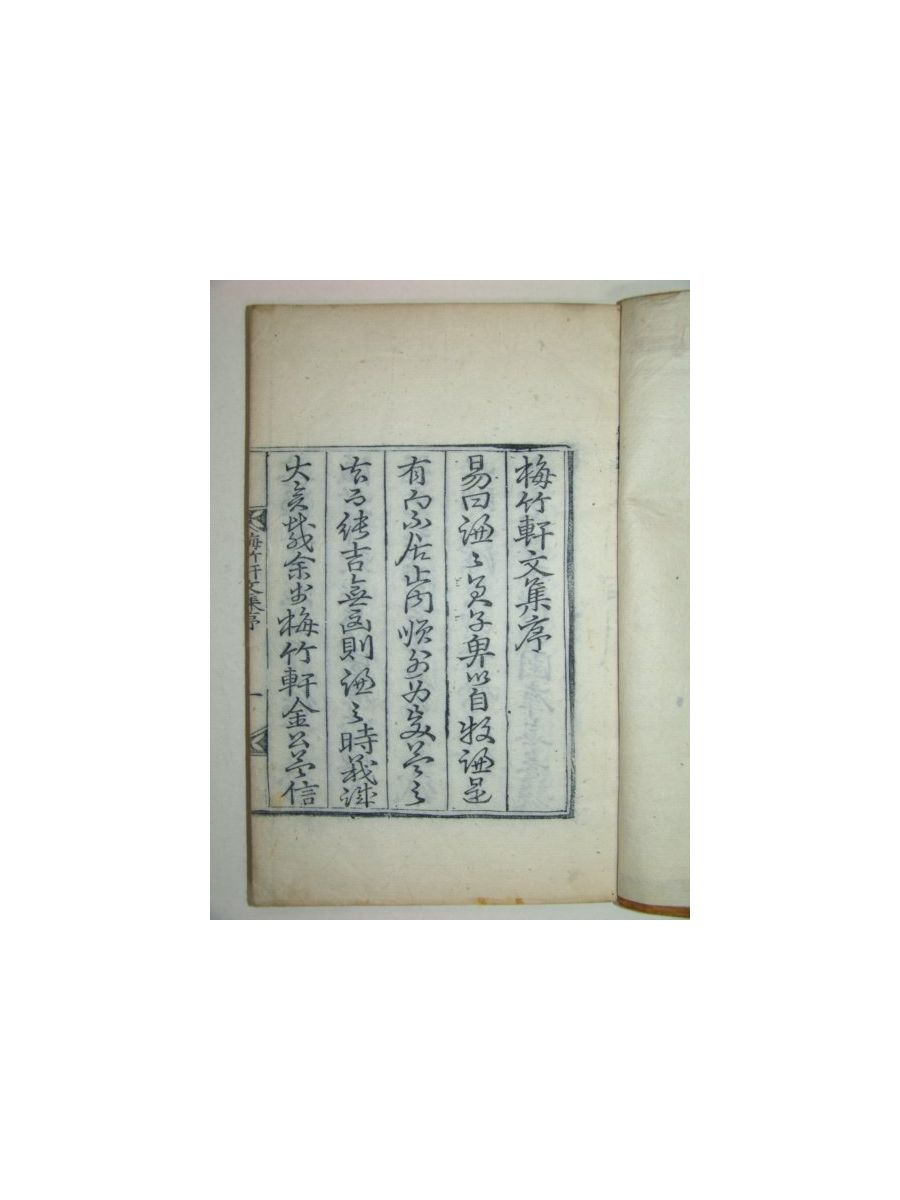 梅竹軒文集序
易曰謙〻君子卑以自牧謙是
有而不居止內順外 之
而純吉無凶則謙之時義誠
大矣哉余於梅竹軒金公益信
梅竹軒文集序 一